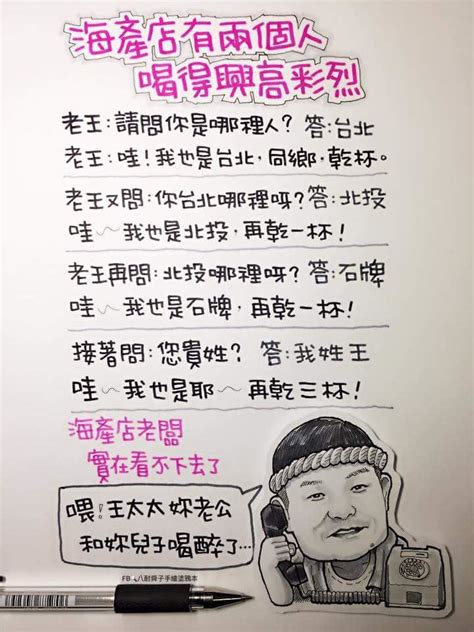 海產店有兩個人
喝得興高彩烈
老王:請問你是哪裡人? 答:台北
老王:哇!我也是台北,同鄉,乾杯。
老王又問:你台北哪裡呀?答:北投
哇~我也是北投,再乾一杯!
老王再問:北投哪裡呀?答:石牌
哇~我也是石牌,再乾一杯!
接著問:您貴姓? 答:我姓王
哇~我也是耶~再乾三杯!
海產店老闆
實在看不下去了
喂!王太太妳老公
和妳兒子喝醉了…